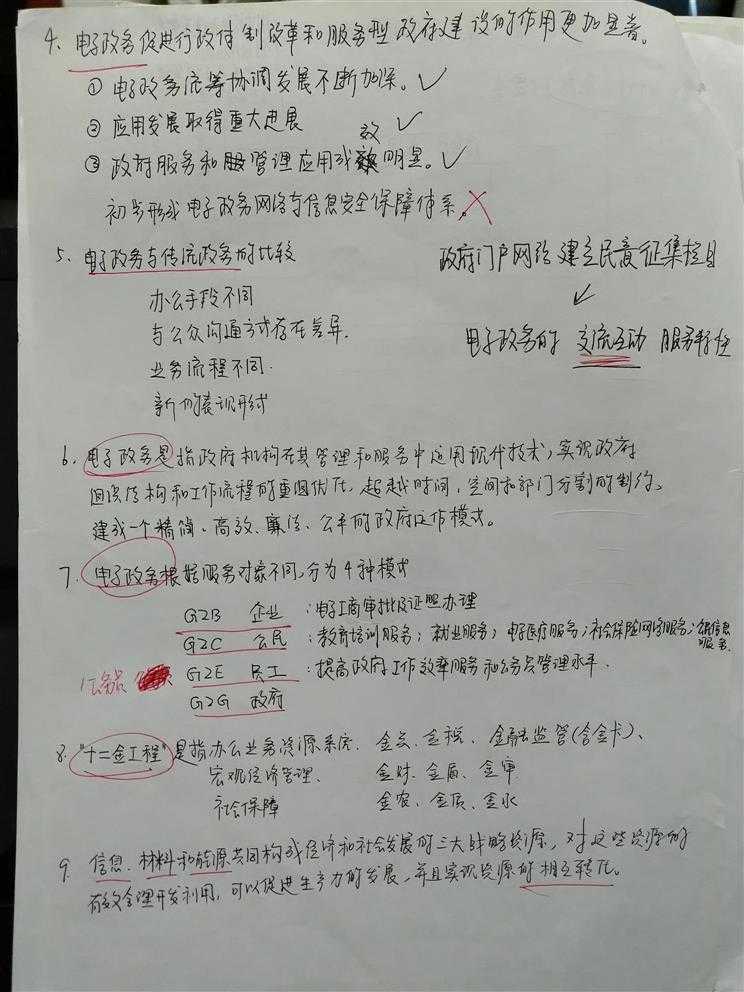 4、电子政务促进行政体制改革和服务型政府建设的作用更加显著。
①电子政务统筹协调发展不断加深。✓
②应用发展取得重大进展 ✓
③政府服务和管理应用成效明显。✓
初步形成电子政务网络与信息安全保障体系。×
5、电子政务与传统政务的比较
办公手段不同
与公众沟通方式存在差异.
业务流程不同.
新的表现形式
政府门户网站建立民意征集栏目
↙
电子政务的 交流互动 服务特性
6、电子政务是指政府机构在其管理和服务中运用现代技术,实现政府
组织结构和工作流程的重组优化,超越时间、空间和部门分割的制约。
建成一个精简、高效、廉洁、公平的政府运作模式。
7、电子政务根据服务对象不同,分为4种模式
G2B 企业 :电子工商审批及证照办理
G2C 公民 :教育培训服务;就业服务;电子医疗服务;社会保险网络服务;信息服务.
公务员 G2E 员工 :提高政府工作效率服务和公务员管理水平.
G2G 政府
8、"十二金工程"是指办公业务资源系统. 金关、金税、金融监管(含金卡)、
宏观经济管理. 金财、金盾、金审
社会保障 金农、金质、金水
9、信息、材料和能源共同构成经济和社会发展的三大战略资源,对这些资源的
有效合理开发利用,可以促进生产力的发展,并且实现资源的相互转化。